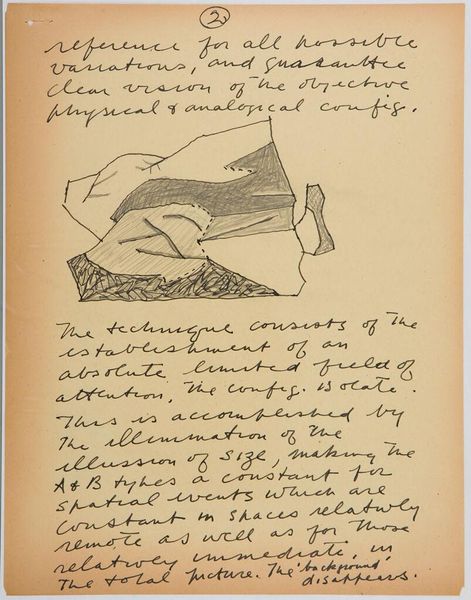 2
reference for all possible
variations, and guarantee
clear vision of the objective
physical & analogical config.
The technique consists of the
establishment of an
absolute limited field of
attention, the config. isolate.
This is accomplished by
the illimination of the
illussion of size, making the
A & B types a constant for
spatial events which are
constant in spaces relativly
remote as well as for those
relativly immediate, in
the total picture. The 'background'
disappears.